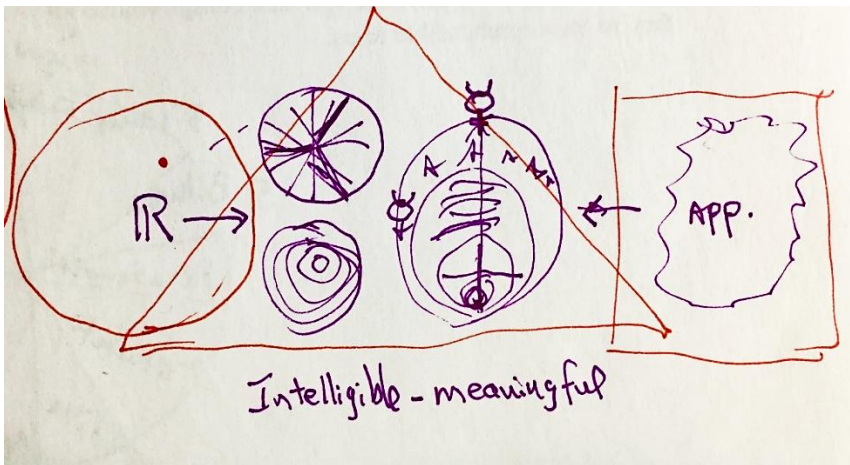 ℝ → ← APP.
Intelligible - meaningful